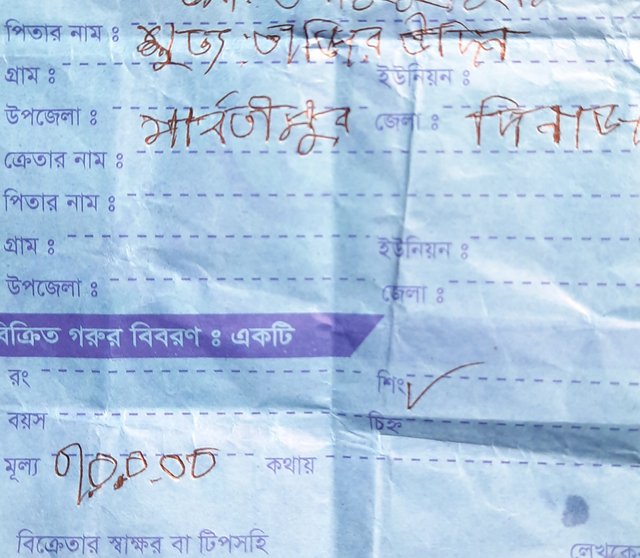 পিতার নাম ঃ মৃত্যু তাজির উদ্দিন
গ্রাম ঃ ইউনিয়ন ঃ
উপজেলা ঃ পার্বতীপুর জেলা ঃ দিনাজ
ক্রেতার নাম ঃ
পিতার নাম ঃ
গ্রাম ঃ ইউনিয়ন ঃ
উপজেলা ঃ জেলা ঃ
বিক্রিত গরুর বিবরণ ঃ একটি
রং শিং ✓
বয়স চিহ্ন
মূল্য ৭০,০০০ কথায়
বিক্রেতার স্বাক্ষর বা টিপসহি লেখকে